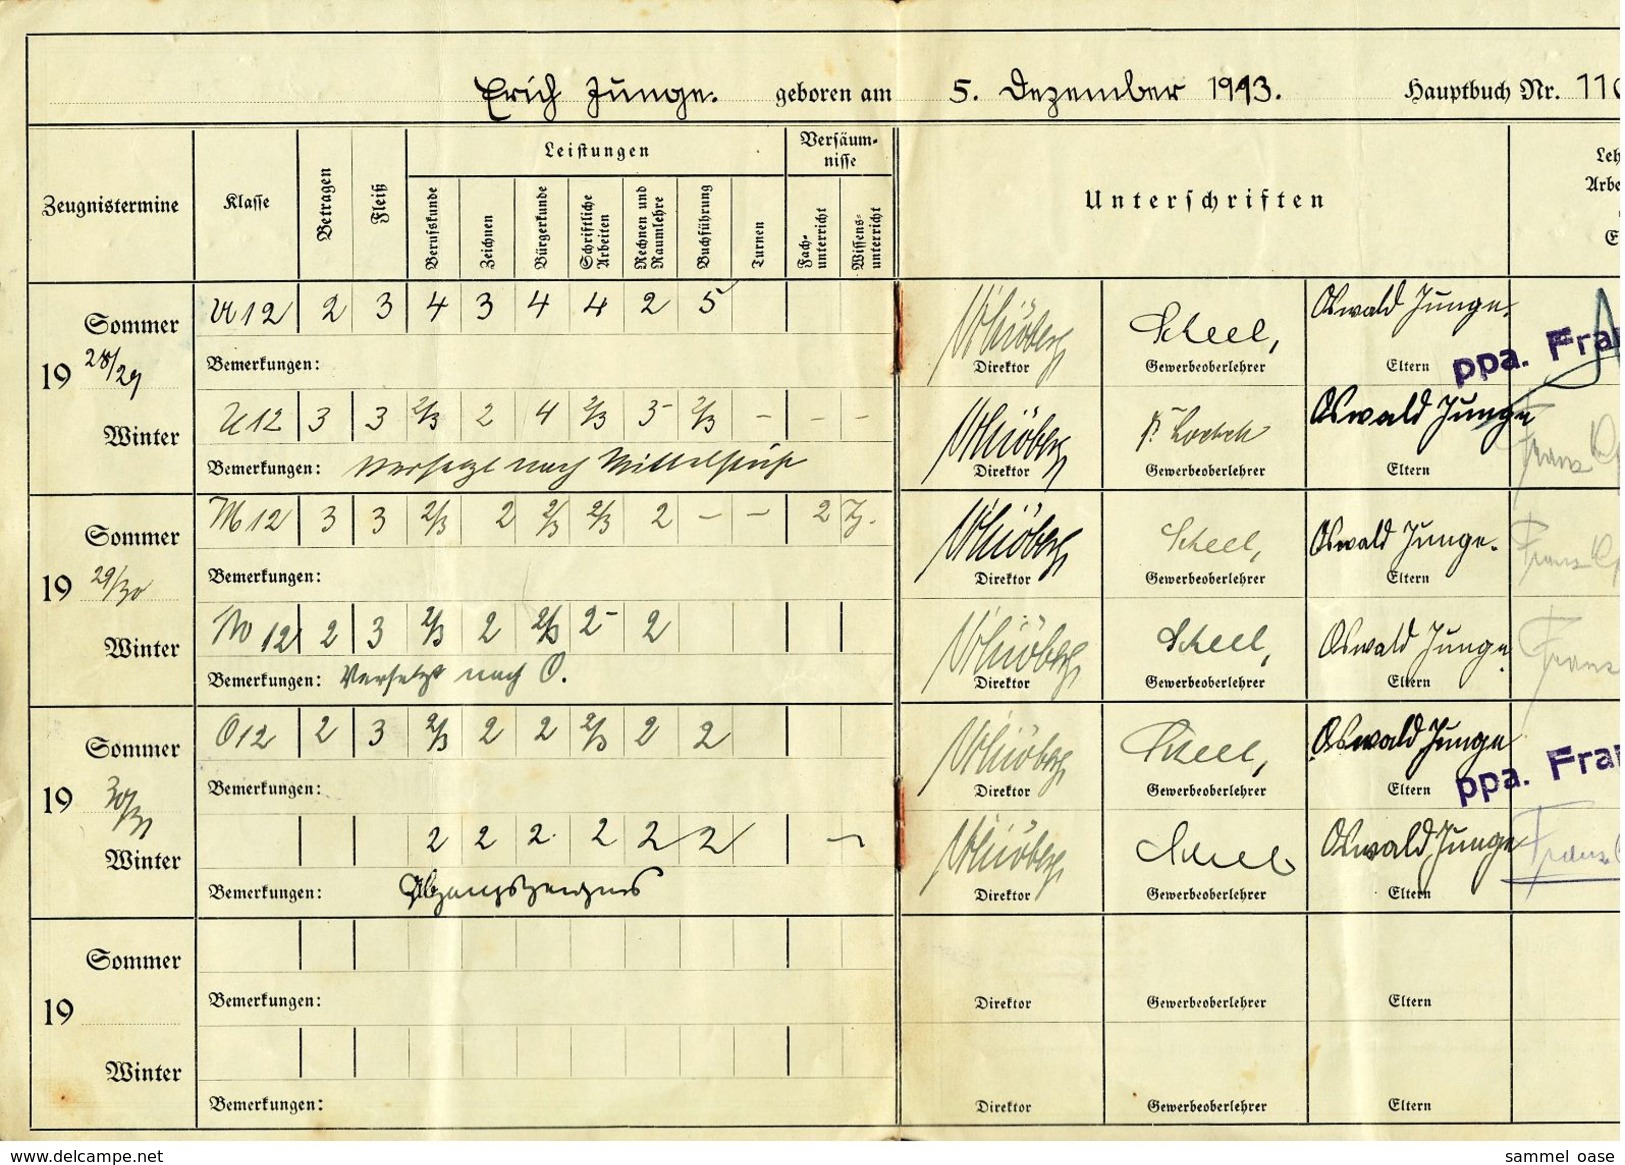 Erich Junge. geboren am 5. Dezember 1913. Hauptbuch Nr. 110
Zeugnistermine Klasse Betragen Fleiß Leistungen Versäumnisse Unterschriften
Berufskunde Zeichnen Bürgerkunde Schriftliche Arbeiten Rechnen und Raumlehre Buchführung Turnen Fachunterricht Wissensunterricht
Sommer U 12 2 3 4 3 4 4 2 5 Scheel, Oswald Junge.
19 28/29 Bemerkungen: Direktor Gewerbeoberlehrer Eltern ppa.
Winter U 12 3 3 2/3 2 4 2/3 3- 2/3 - - - Oswald Junge
Bemerkungen: Versetzt nach Mittelstufe Direktor Gewerbeoberlehrer Eltern Franz
Sommer M 12 3 3 2/3 2 2/3 2/3 2 - - 2 Scheel, Oswald Junge.
19 29/30 Bemerkungen: Direktor Gewerbeoberlehrer Eltern Franz
Winter M 12 2 3 2/3 2 2/3 2- 2 Scheel, Oswald Junge
Bemerkungen: Versetzt nach O. Direktor Gewerbeoberlehrer Eltern Franz
Sommer O 12 2 3 2/3 2 2 2/3 2 2 Scheel, Oswald Junge
19 30/31 Bemerkungen: Direktor Gewerbeoberlehrer Eltern ppa.
Winter 2 2 2 2 2 2 Scheel Oswald Junge Franz
Bemerkungen: Abgangszeugnis Direktor Gewerbeoberlehrer Eltern
Sommer
19 Bemerkungen: Direktor Gewerbeoberlehrer Eltern
Winter
Bemerkungen: Direktor Gewerbeoberlehrer Eltern
www.delcampe.net sammel_oase